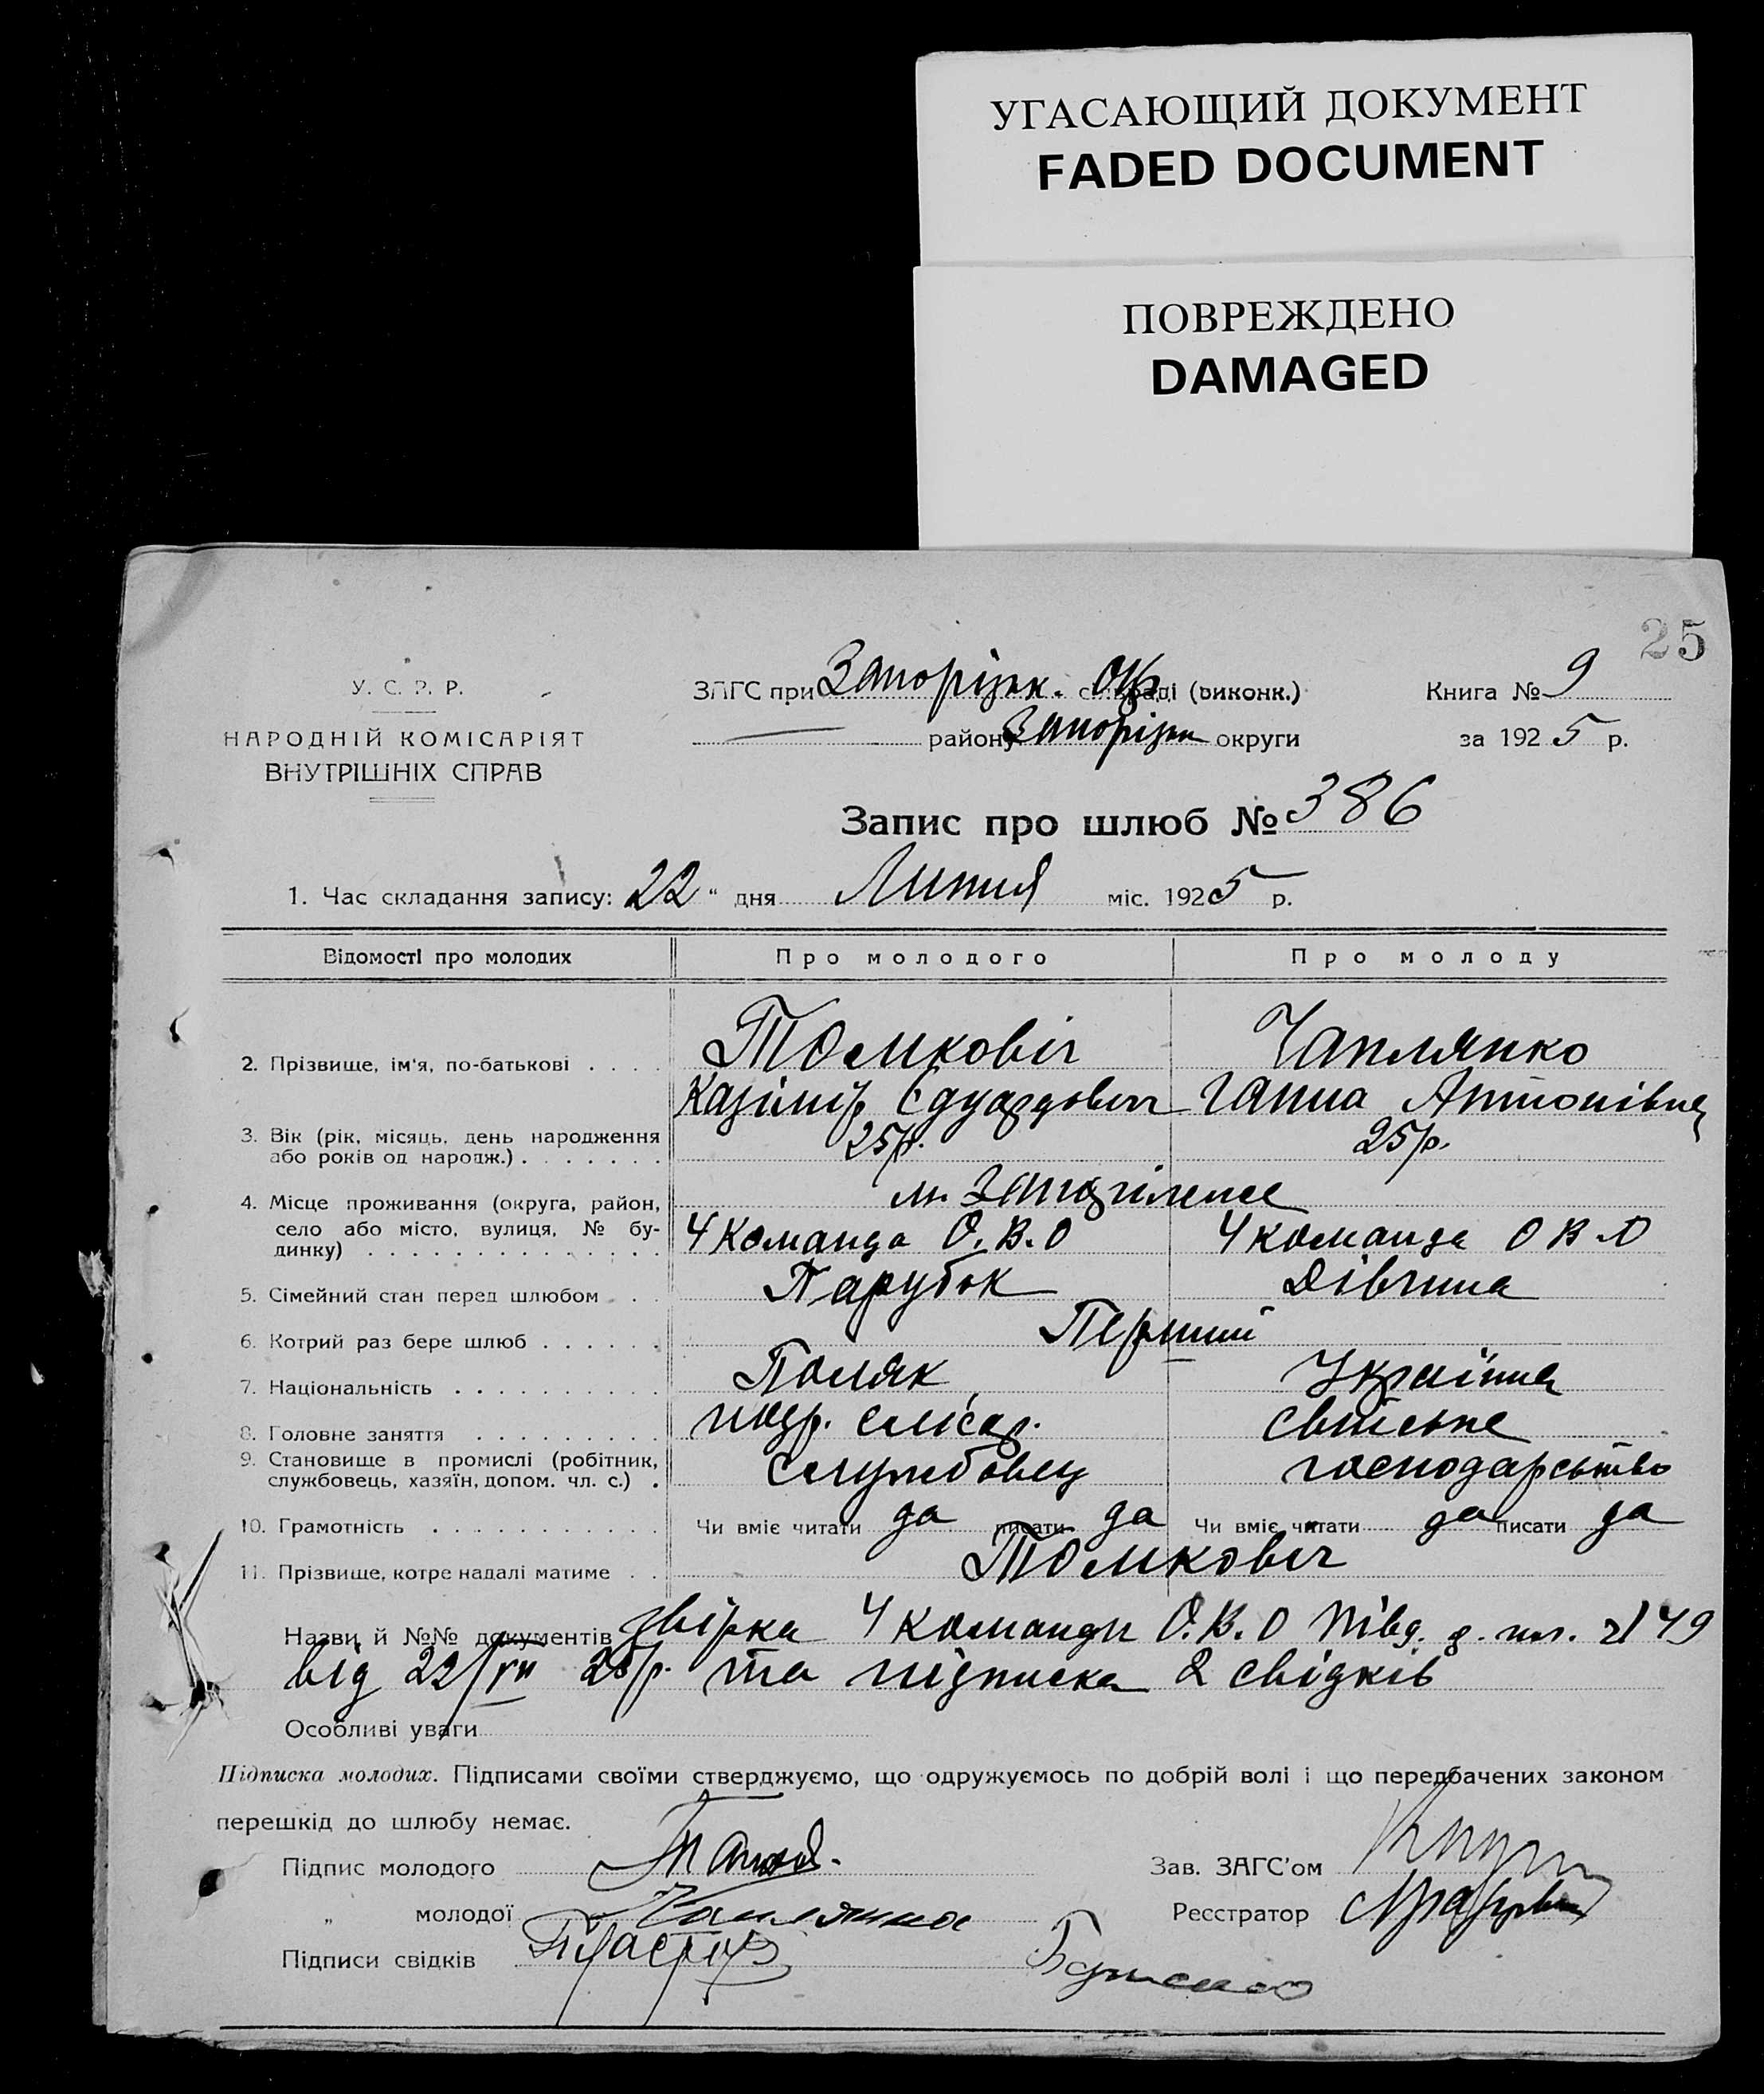 УГАСАЮЩИЙ ДОКУМЕНТ
FADED DOCUMENT
ПОВРЕЖДЕНО
DAMAGED
25
У. С. Р. Р.
НАРОДНІЙ КОМІСАРІЯТ
ВНУТРІШНІХ СПРАВ
ЗАГС при Запорізьк. (виконк.)
району Запорізьк округи
Книга № 9
за 1925 р.
Запис про шлюб № 386
1. Час складання запису: 22 " дня Липня міс. 1925 р.
Відомості про молодих Про молодого Про молоду
2. Прізвище, ім'я, по-батькові . . . . Томковіч Чаплянко
Казімір Едуардович Ганна Антонівна
3. Вік (рік, місяць, день народження
або років од народж.) . . . . . . . 25р. 25р.
4. Місце проживання (округа, район, м. Запоріжже
село або місто, вулиця, № бу-
динку) . . . . . . . . . . . . . . 4 команда О.В.О 4 команда О В О
5. Сімейний стан перед шлюбом . . Парубок Дівчина
6. Котрий раз бере шлюб . . . . . . Перший
7. Національність . . . . . . . . . . Поляк Українка
8. Головне заняття . . . . . . . . . свійське
9. Становище в промислі (робітник,
службовець, хазяїн, допом. чл. с.) . Службовец господарсьтво
10. Грамотність . . . . . . . . . . . Чи вміє читати да писати да Чи вміє читати да писати да
11. Прізвище, котре надалі матиме . . Томковіч
Назви й №№ документів 4 команди О.В.О Півд. 49
від 22/VII 25р. та підписка 2 свідків
Особливі уваги
Підписка молодих. Підписами своїми стверджуємо, що одружуємось по добрій волі і що передбачених законом
перешкід до шлюбу немає.
Підпис молодого
Зав. ЗАГС'ом
" молодої Чаплянко
Реєстратор
Підписи свідків